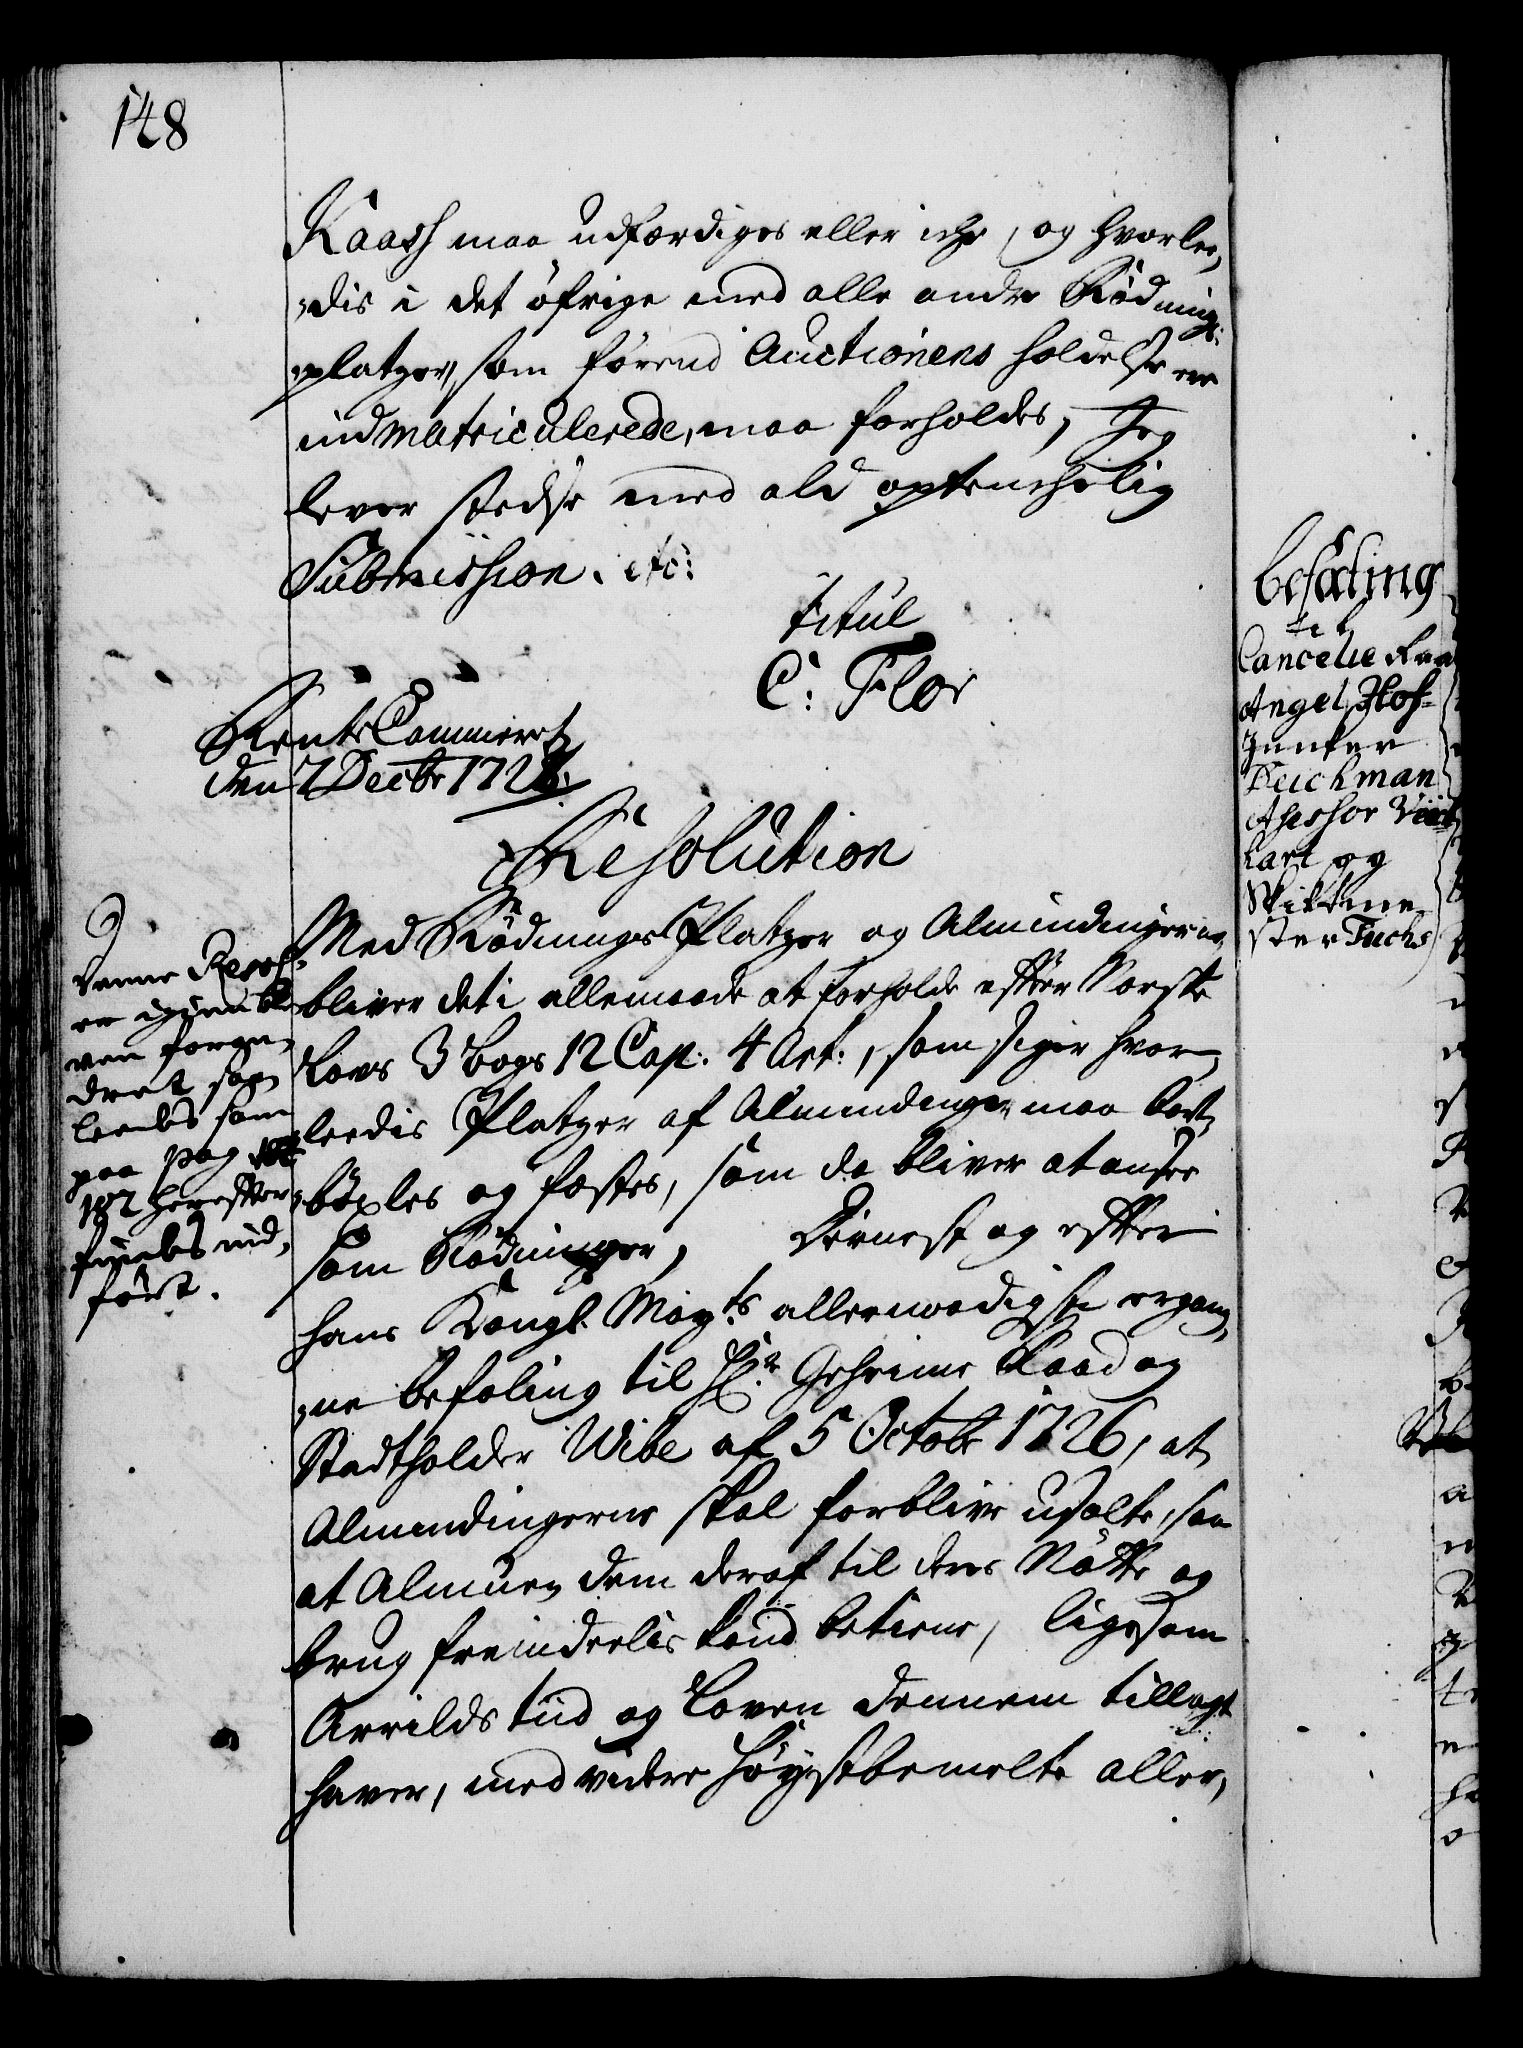 148
Kaash maa udfærdiges eller iche, og hvorlee,
"dis i det öfrige med alle andre Rödnings:
"platzer, som førend Auctionens holdelse ere
indmatriculerede, maa forholdes, Jeg
lever stedse med ald optenchelig
Submission. etc:
titul
C: Flor
RenteCammeret
den 7 Decbr 1728.
Resolution
Denne Resol:
er igien ble
ven foran,
dret saa,
leedes som
paa pag
182 herefter
findes ind,
fört.
Med Rödnings Platzer og Almindingerne
bliver det i allemaade at forholde efter Norske
Lovs 3 bogs 12 Cap: 4 Art:, som siger hvor,
"leedis Platzer af Almindinger maa bort,
"böxles og fæstes, som da bliver at ansee
som Rödninger, Dernest og efter
hans Kongl. Mayts allernaadigste ergang,
"ne befaling til Hr. Geheime Raad og
Stadtholder Wibe af 5 Octobr 1726, at
Almindingerne skal forblive usolte, saa
at Almuen dem deraf til deres Nötte og
brug fremdeelis kand betiene, ligesom
Arrilds tiid og Loven dennem tillagt
haver, med videre höystbemelte aller,
befaling
til
Cancelie Raa
Angel, Hof-
Junker
Deichman
Assessor
Karl og
Skiktme
ster Fuchs